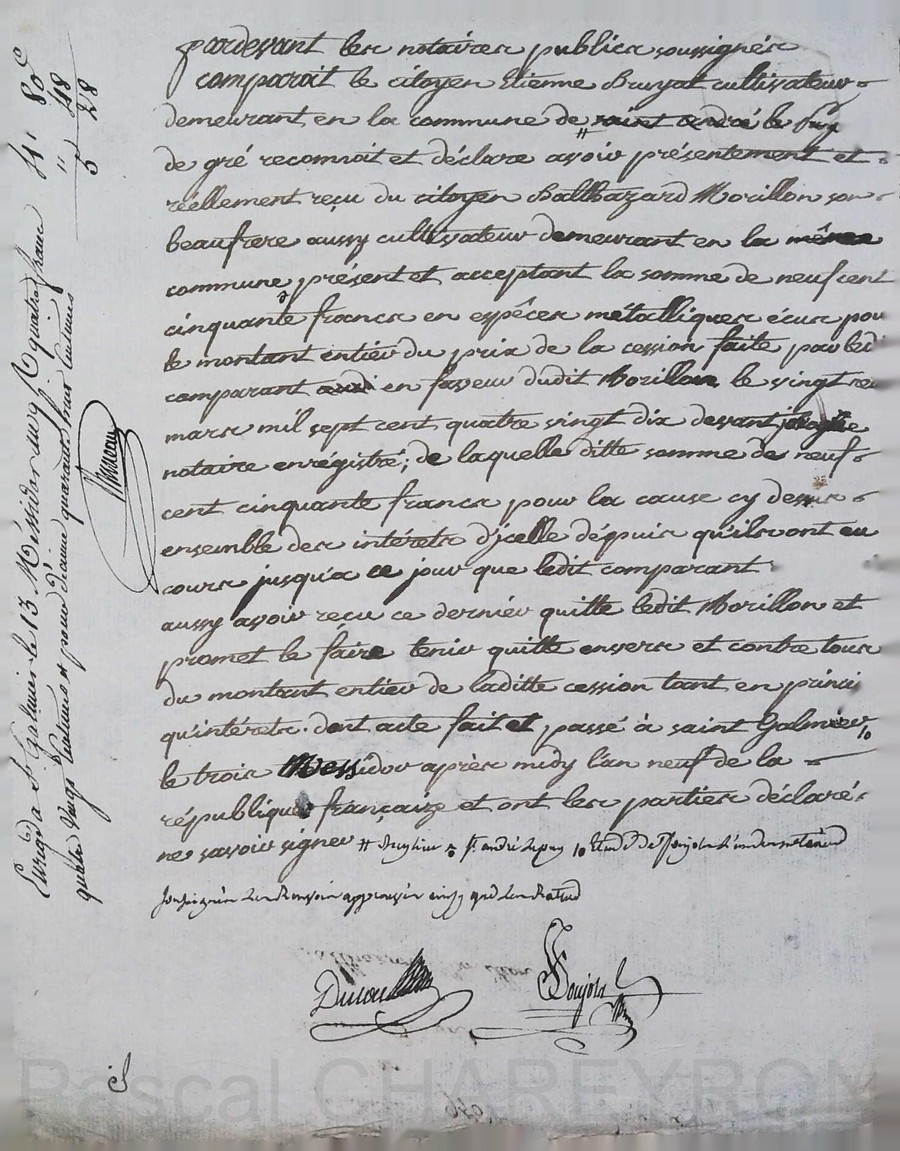 pardevant les notaires publics soussignés
comparait le citoyen Etienne Bruyat cultivateur
demeurant en la commune de saint andré le Puy
de gré reconnait et déclare avoir présentement et
réellement reçu du citoyen Balthazard Morillon son
beaufrere aussy cultivateur demeurant en la même
commune présent et acceptant la somme de neuf cent
cinquante francs en espêces métalliques écus pou
le montant entier du prix de la cession faite par ledi
comparant en faveur dudit Morillon le vingt
mars mil sept cent quatre vingt dix devant
notaire enrégistré; de laquelle ditte somme de neuf
cent cinquante francs pour la cause cy dessus
ensemble des intérets d'jcelle dépuis qu'ils ont eu
cours jusqu'a ce jour que ledit comparant
aussy avoir reçu ce dernier quitte ledit Morillon et
promet le faire tenir quitte envers et contre tous
du montant entier de laditte cession tant en princi
qu'intérets. dont acte fait et passé à saint Galmier
le trois Messidor après midy l'an neuf de la
république françaize et ont les parties déclaré
ne savoir signer # # St andré le puy
soussignés Les Renvois approuvés ainsy que Les
Enrg à St Galmier le 13 Messidor an 9 R quatre francs
quatre vingt centimes et pour dixième quarante huit centimes
4f 80c
" 48
5 28
Pascal CHAREYRON